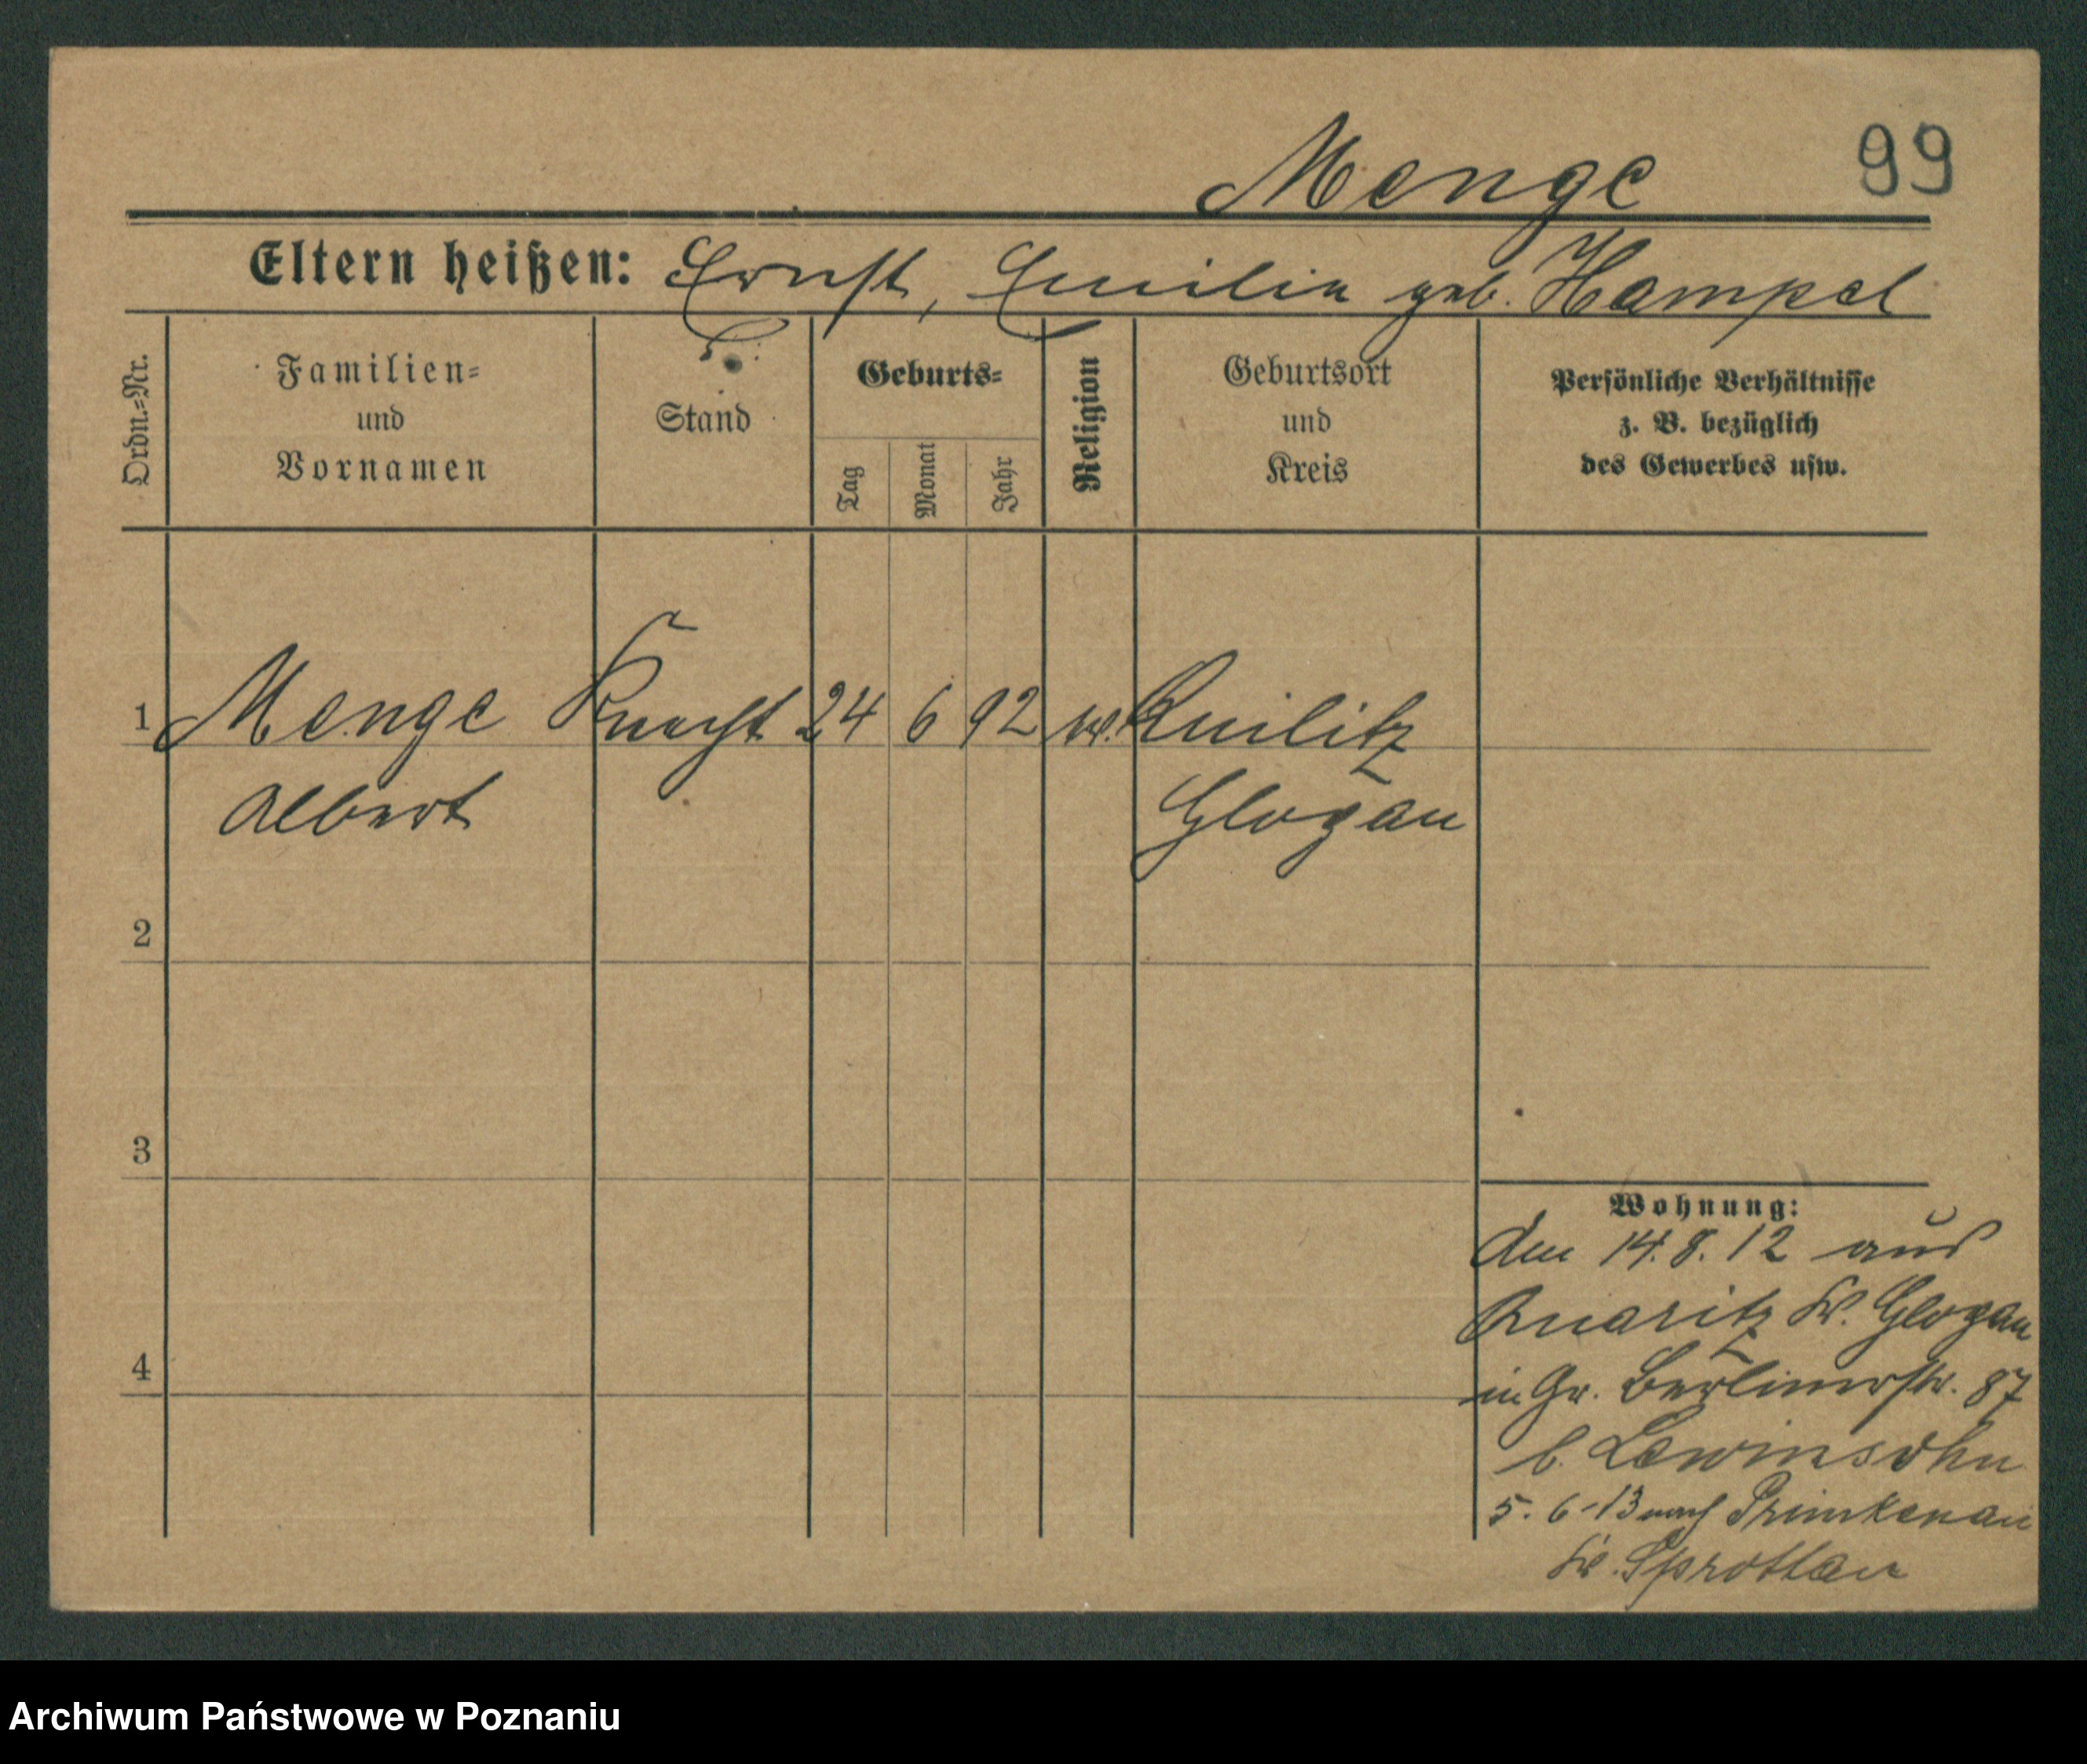 Menge 99
Eltern heißen: Ernst, Emilie geb. Hampel
Ordn.=Nr.
Familien=
und
Vornamen
Stand
Geburts=
Tag
Monat
Jahr
Religion
Geburtsort
und
Kreis
Persönliche Verhältnisse
z. B. bezüglich
des Gewerbes usw.
1 Menge Knecht 24 6 92
Albert Glogau
2
3
4
Wohnung:
den 14. 8. 12 aus
Quaritz Kr. Glogau
in Gr. Berlinerstr. 87
b. Lewinsohn
5. 6-13 nach Primkenau
Kr. Sprottau
Archiwum Państwowe w Poznaniu